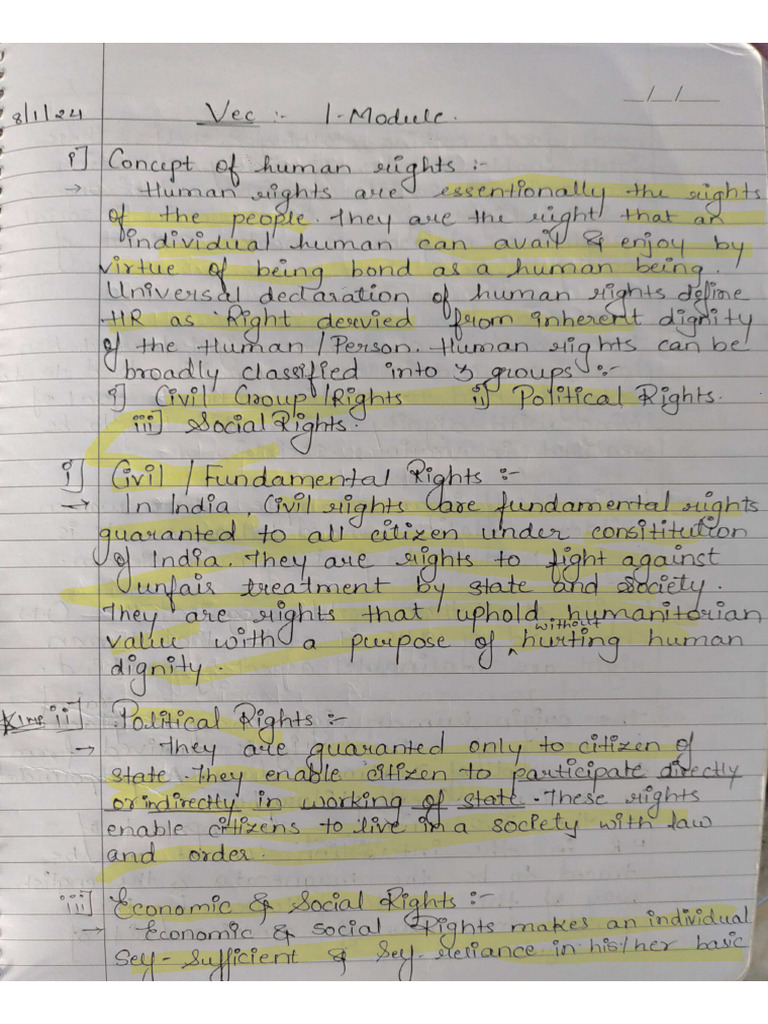 _/_/_
8/1/24 Vec :- 1-Module.
i] Concept of human rights :-
→ Human rights are essentionally the rights
of the people. They are the right that an
individual human can avail & enjoy by
virtue of being bond as a human being.
Universal declaration of human rights define
HR as Right dervied from inherent dignity
of the Human / Person. Human rights can be
broadly classified into 3 groups :-
i] Civil Group / Rights ii] Political Rights.
iii] Social Rights.
i] Civil / Fundamental Rights :-
→ In India, Civil rights are fundamental rights
guaranted to all citizen under consititution
of India. They are rights to fight against
unfair treatment by state and society.
They are rights that uphold humanitorian
value with a purpose of without hurting human
dignity.
*imp ii] Political Rights :-
→ They are guaranted only to citizen of
state. They enable citizen to participate directly
or indirectly in working of state. These rights
enable citizens to live in a society with law
and order.
iii] Economic & Social Rights :-
→ Economic & social Rights makes an individual
Sey-sufficient & Sey-reliance in his/her basic